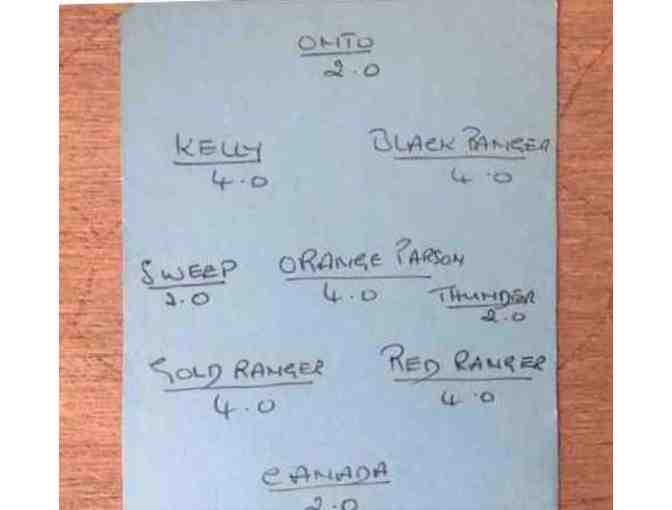 OMTO
2.0
KELLY
4.0
BLACK RANGER
4.0
SWEEP
2.0
ORANGE PARSON
4.0
THUNDER
2.0
GOLD RANGER
4.0
RED RANGER
4.0
CANADA
2.0